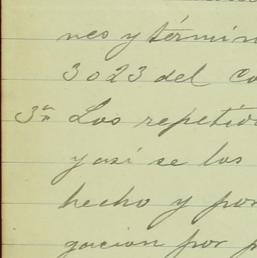 nes y términ
3023 del Co
3ª Los repetido
y así se los
hecho y por
gacion por p